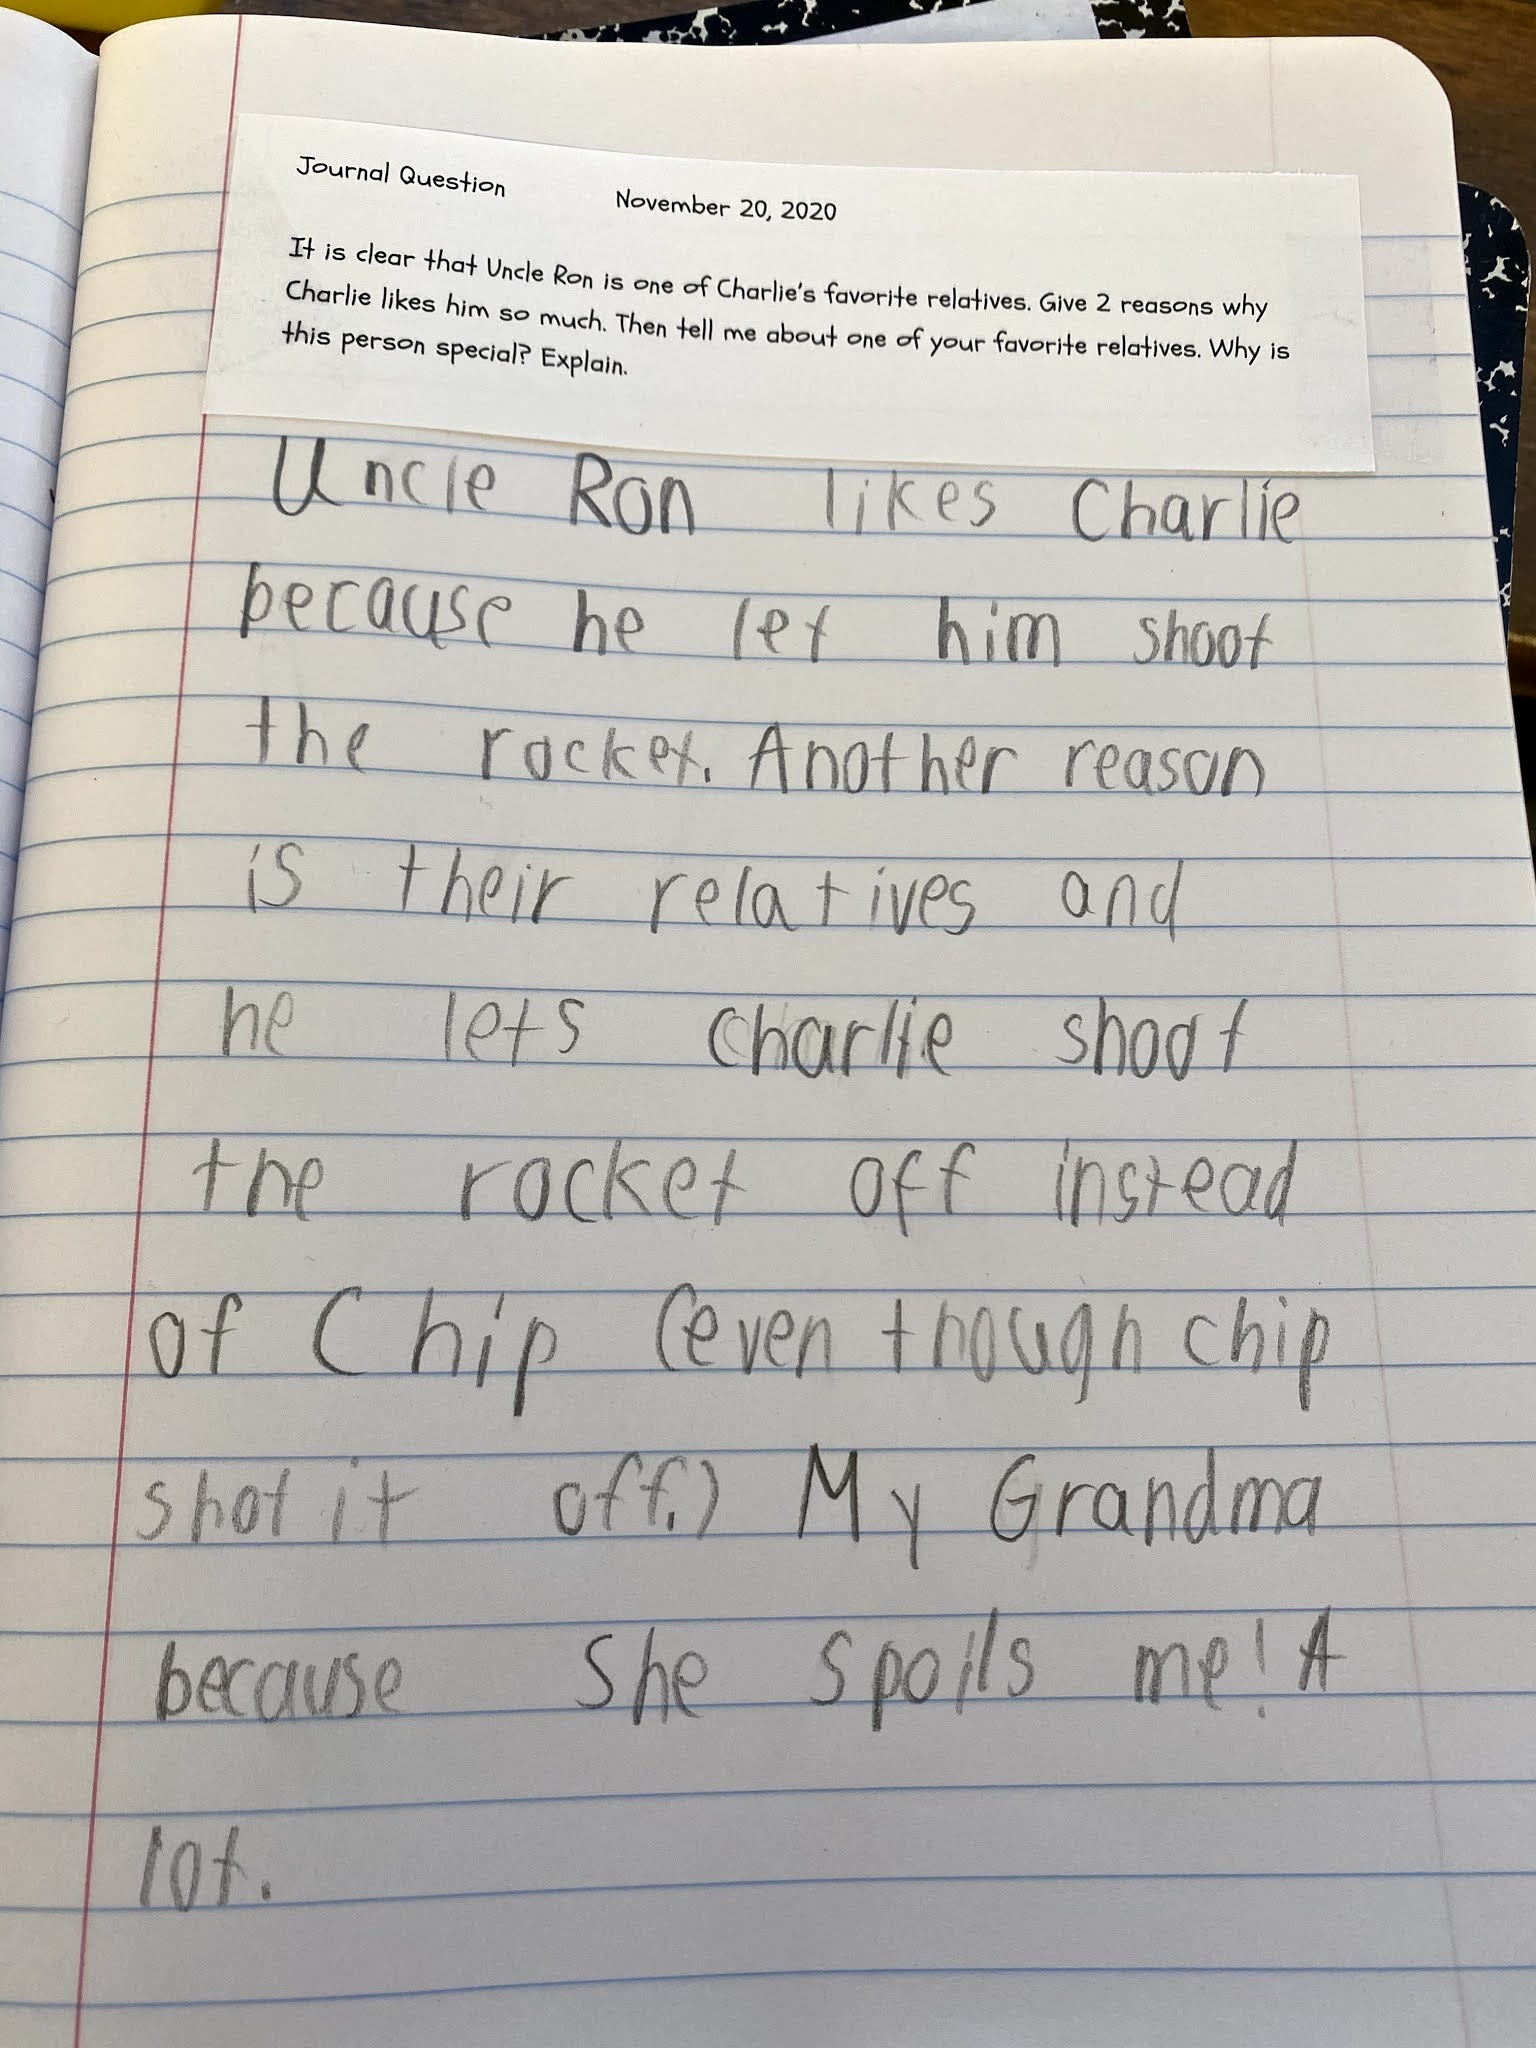 Journal Question November 20, 2020
It is clear that Uncle Ron is one of Charlie's favorite relatives. Give 2 reasons why
Charlie likes him so much. Then tell me about one of your favorite relatives. Why is
this person special? Explain.
Uncle Ron likes Charlie
because he let him shoot
the rocket. Another reason
is their relatives and
he lets Charlie shoot
the rocket off instead
of Chip (even though chip
shot it off.) My Grandma
because She spoils me! A
lot.